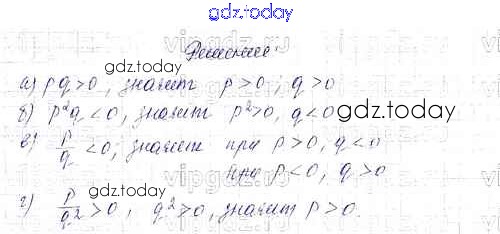 gdz.today
Решение
gdz.today
а) pq>0, значит p>0; q>0
б) p²q<0, значит p²>0, q<0
gdz.today
в) p/q <0, значит при p>0, q<0
при p<0, q>0
gdz.today
г) p/q² >0, q²>0, значит p>0.